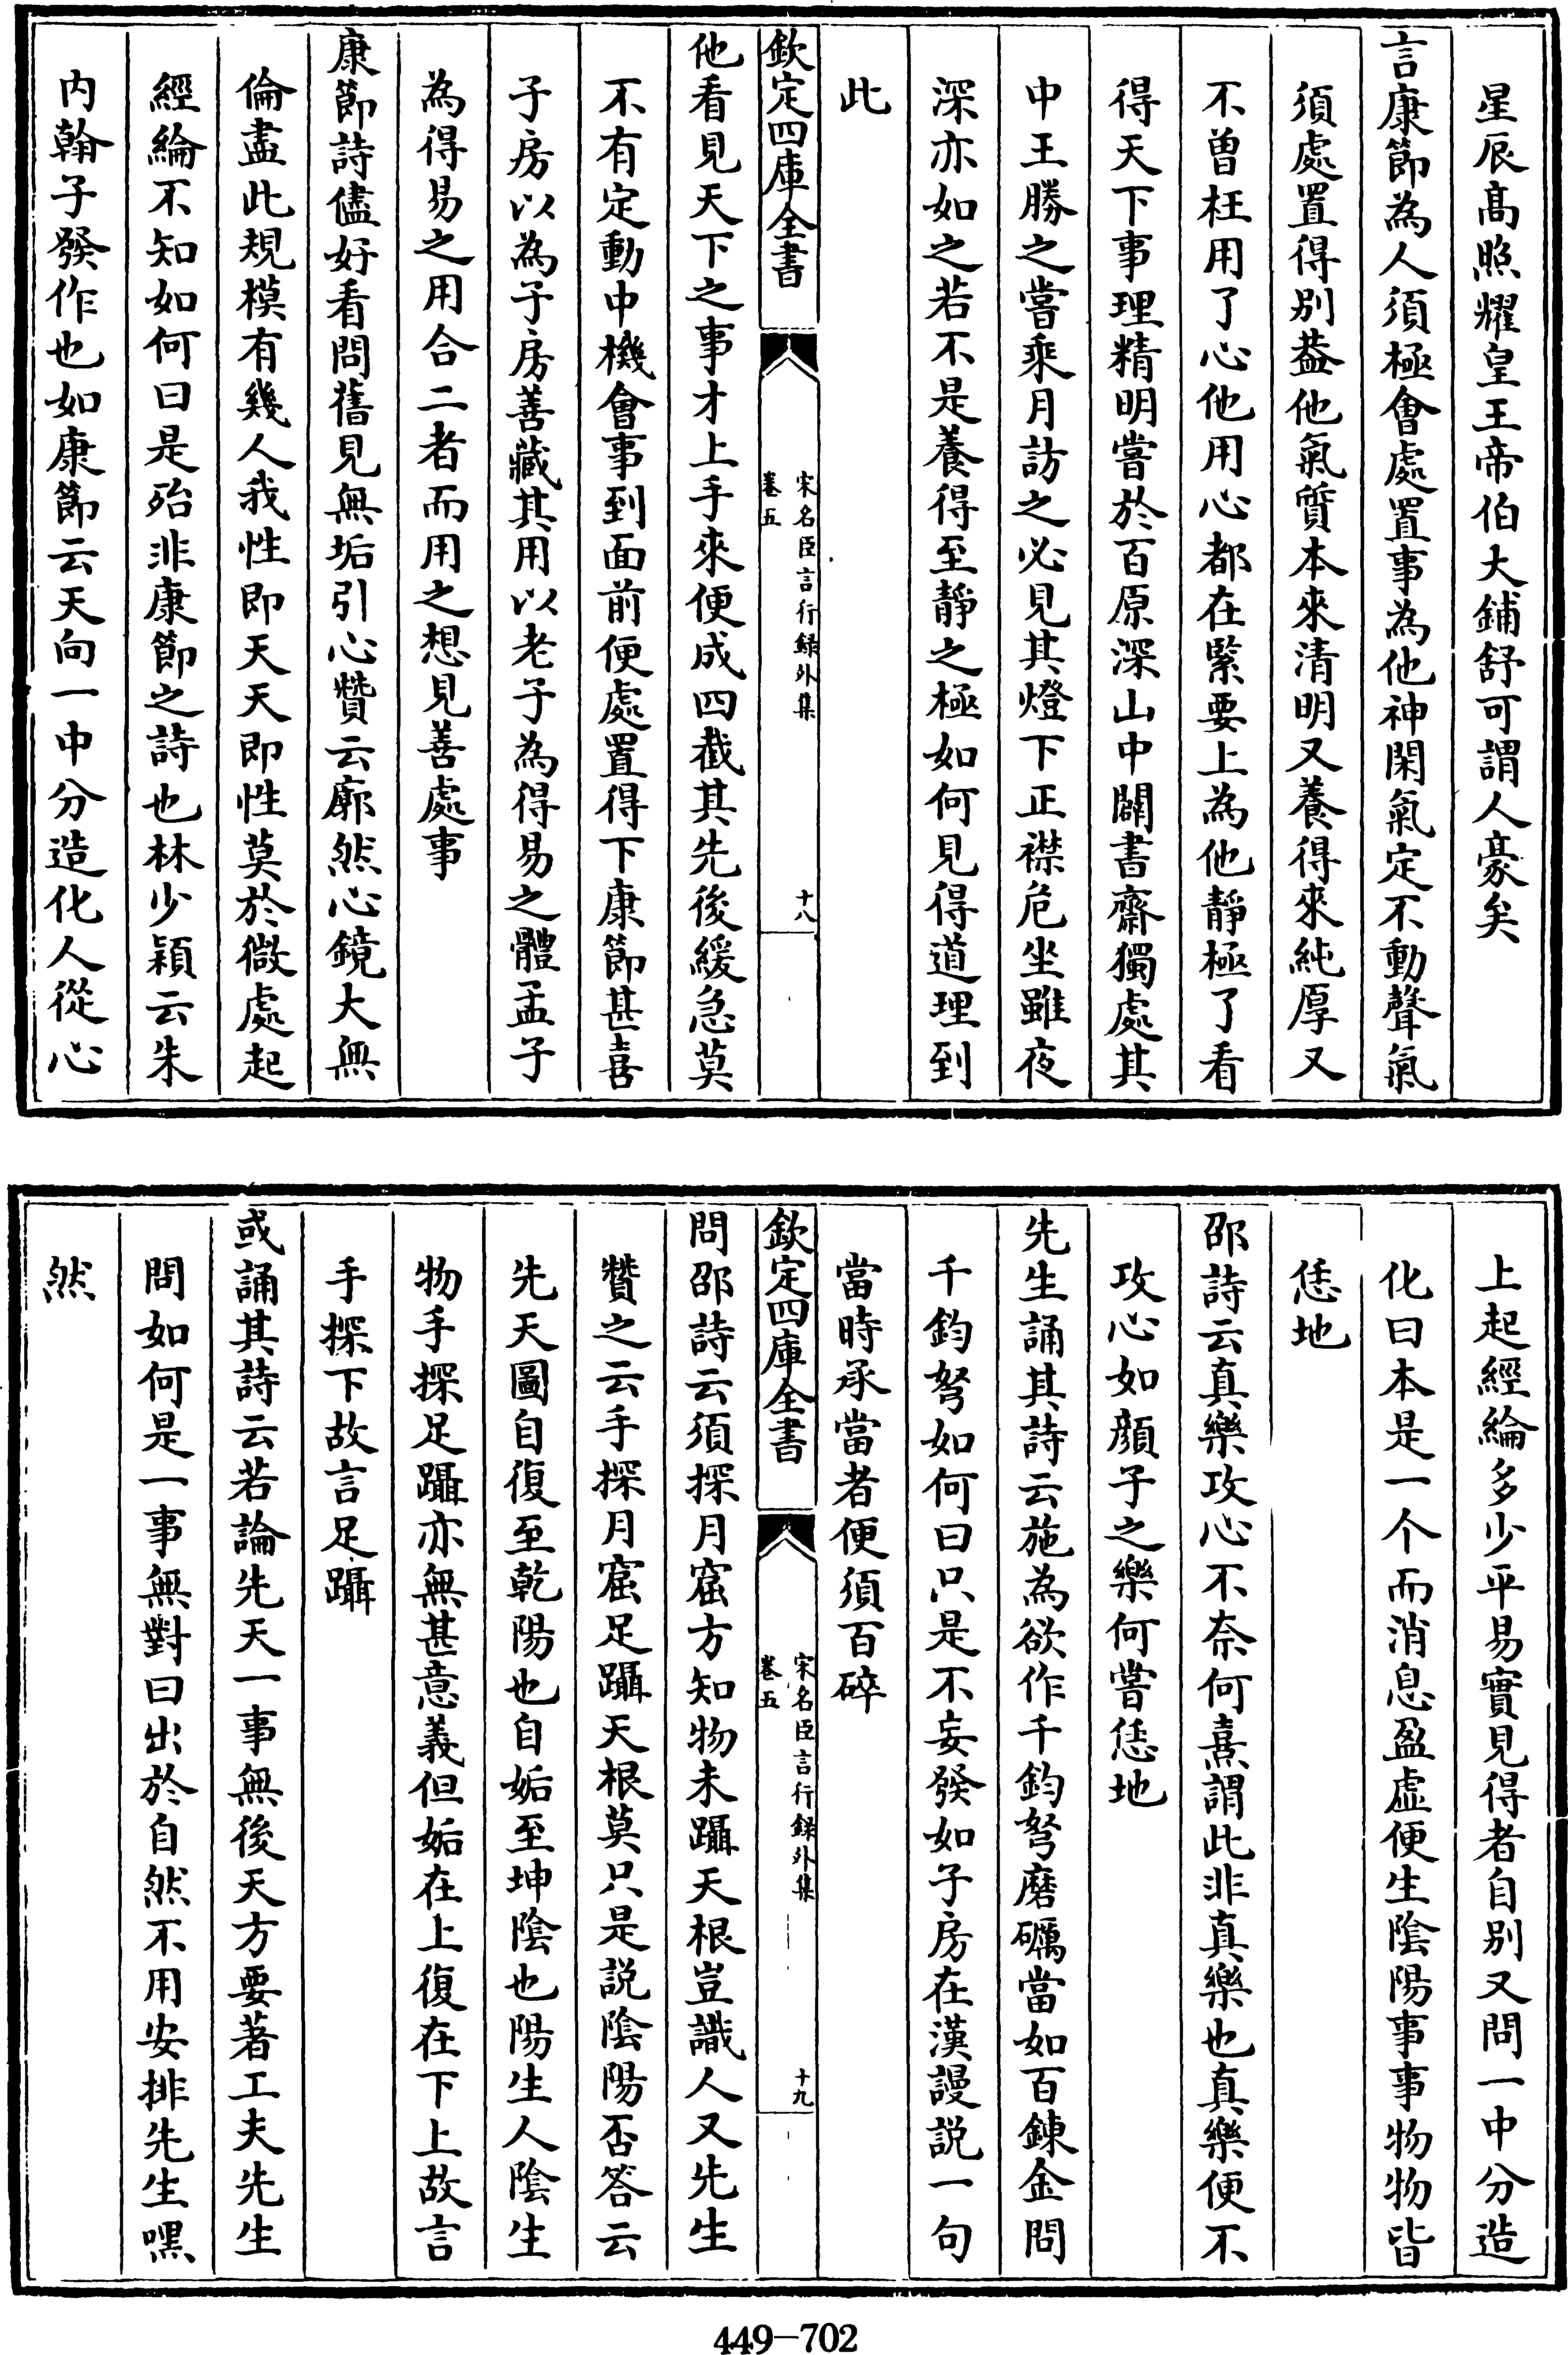 星辰髙照耀皇王帝伯大鋪舒可謂人豪矣
言康節為人須極會處置事為他神閑氣定不動聲氣
須處置得别葢他氣質本來清明又養得來純厚又
不曽枉用了心他用心都在緊要上為他靜極了看
得天下事理精明嘗於百原深山中闢書齋獨處其
中王勝之嘗乘月訪之必見其燈下正襟危坐雖夜
深亦如之若不是養得至靜之極如何見得道理到
此
欽定四庫全書
宋名臣言行録外集
卷五
十八
他看見天下之事才上手來便成四截其先後緩急莫
不有定動中機會事到面前便處置得下康節甚喜
子房以為子房善藏其用以老子為得易之體孟子
為得易之用合二者而用之想見善處事
康節詩儘好看問舊見無垢引心贊云廓然心鏡大無
倫盡此規模有幾人我性即天天即性莫於微處起
經綸不知如何曰是殆非康節之詩也林少穎云朱
内翰子發作也如康節云天向一中分造化人從心
上起經綸多少平易實見得者自别又問一中分造
化曰本是一个而消息盈虛便生陰陽事事物物皆
恁地
邵詩云真樂攻心不奈何熹謂此非真樂也真樂便不
攻心如顔子之樂何嘗恁地
先生誦其詩云施為欲作千鈞弩磨礪當如百鍊金問
千鈞弩如何曰只是不妄發如子房在漢謾説一句
當時承當者便須百碎
欽定四庫全書
宋名臣言行録外集
卷五
十九
問邵詩云須探月窟方知物未躡天根豈識人又先生
贊之云手探月窟足躡天根莫只是説陰陽否答云
先天圖自復至乾陽也自姤至坤陰也陽生人陰生
物手探足躡亦無甚意義但姤在上復在下上故言
手探下故言足躡
或誦其詩云若論先天一事無後天方要著工夫先生
問如何是一事無對曰出於自然不用安排先生嘿
然
449-702